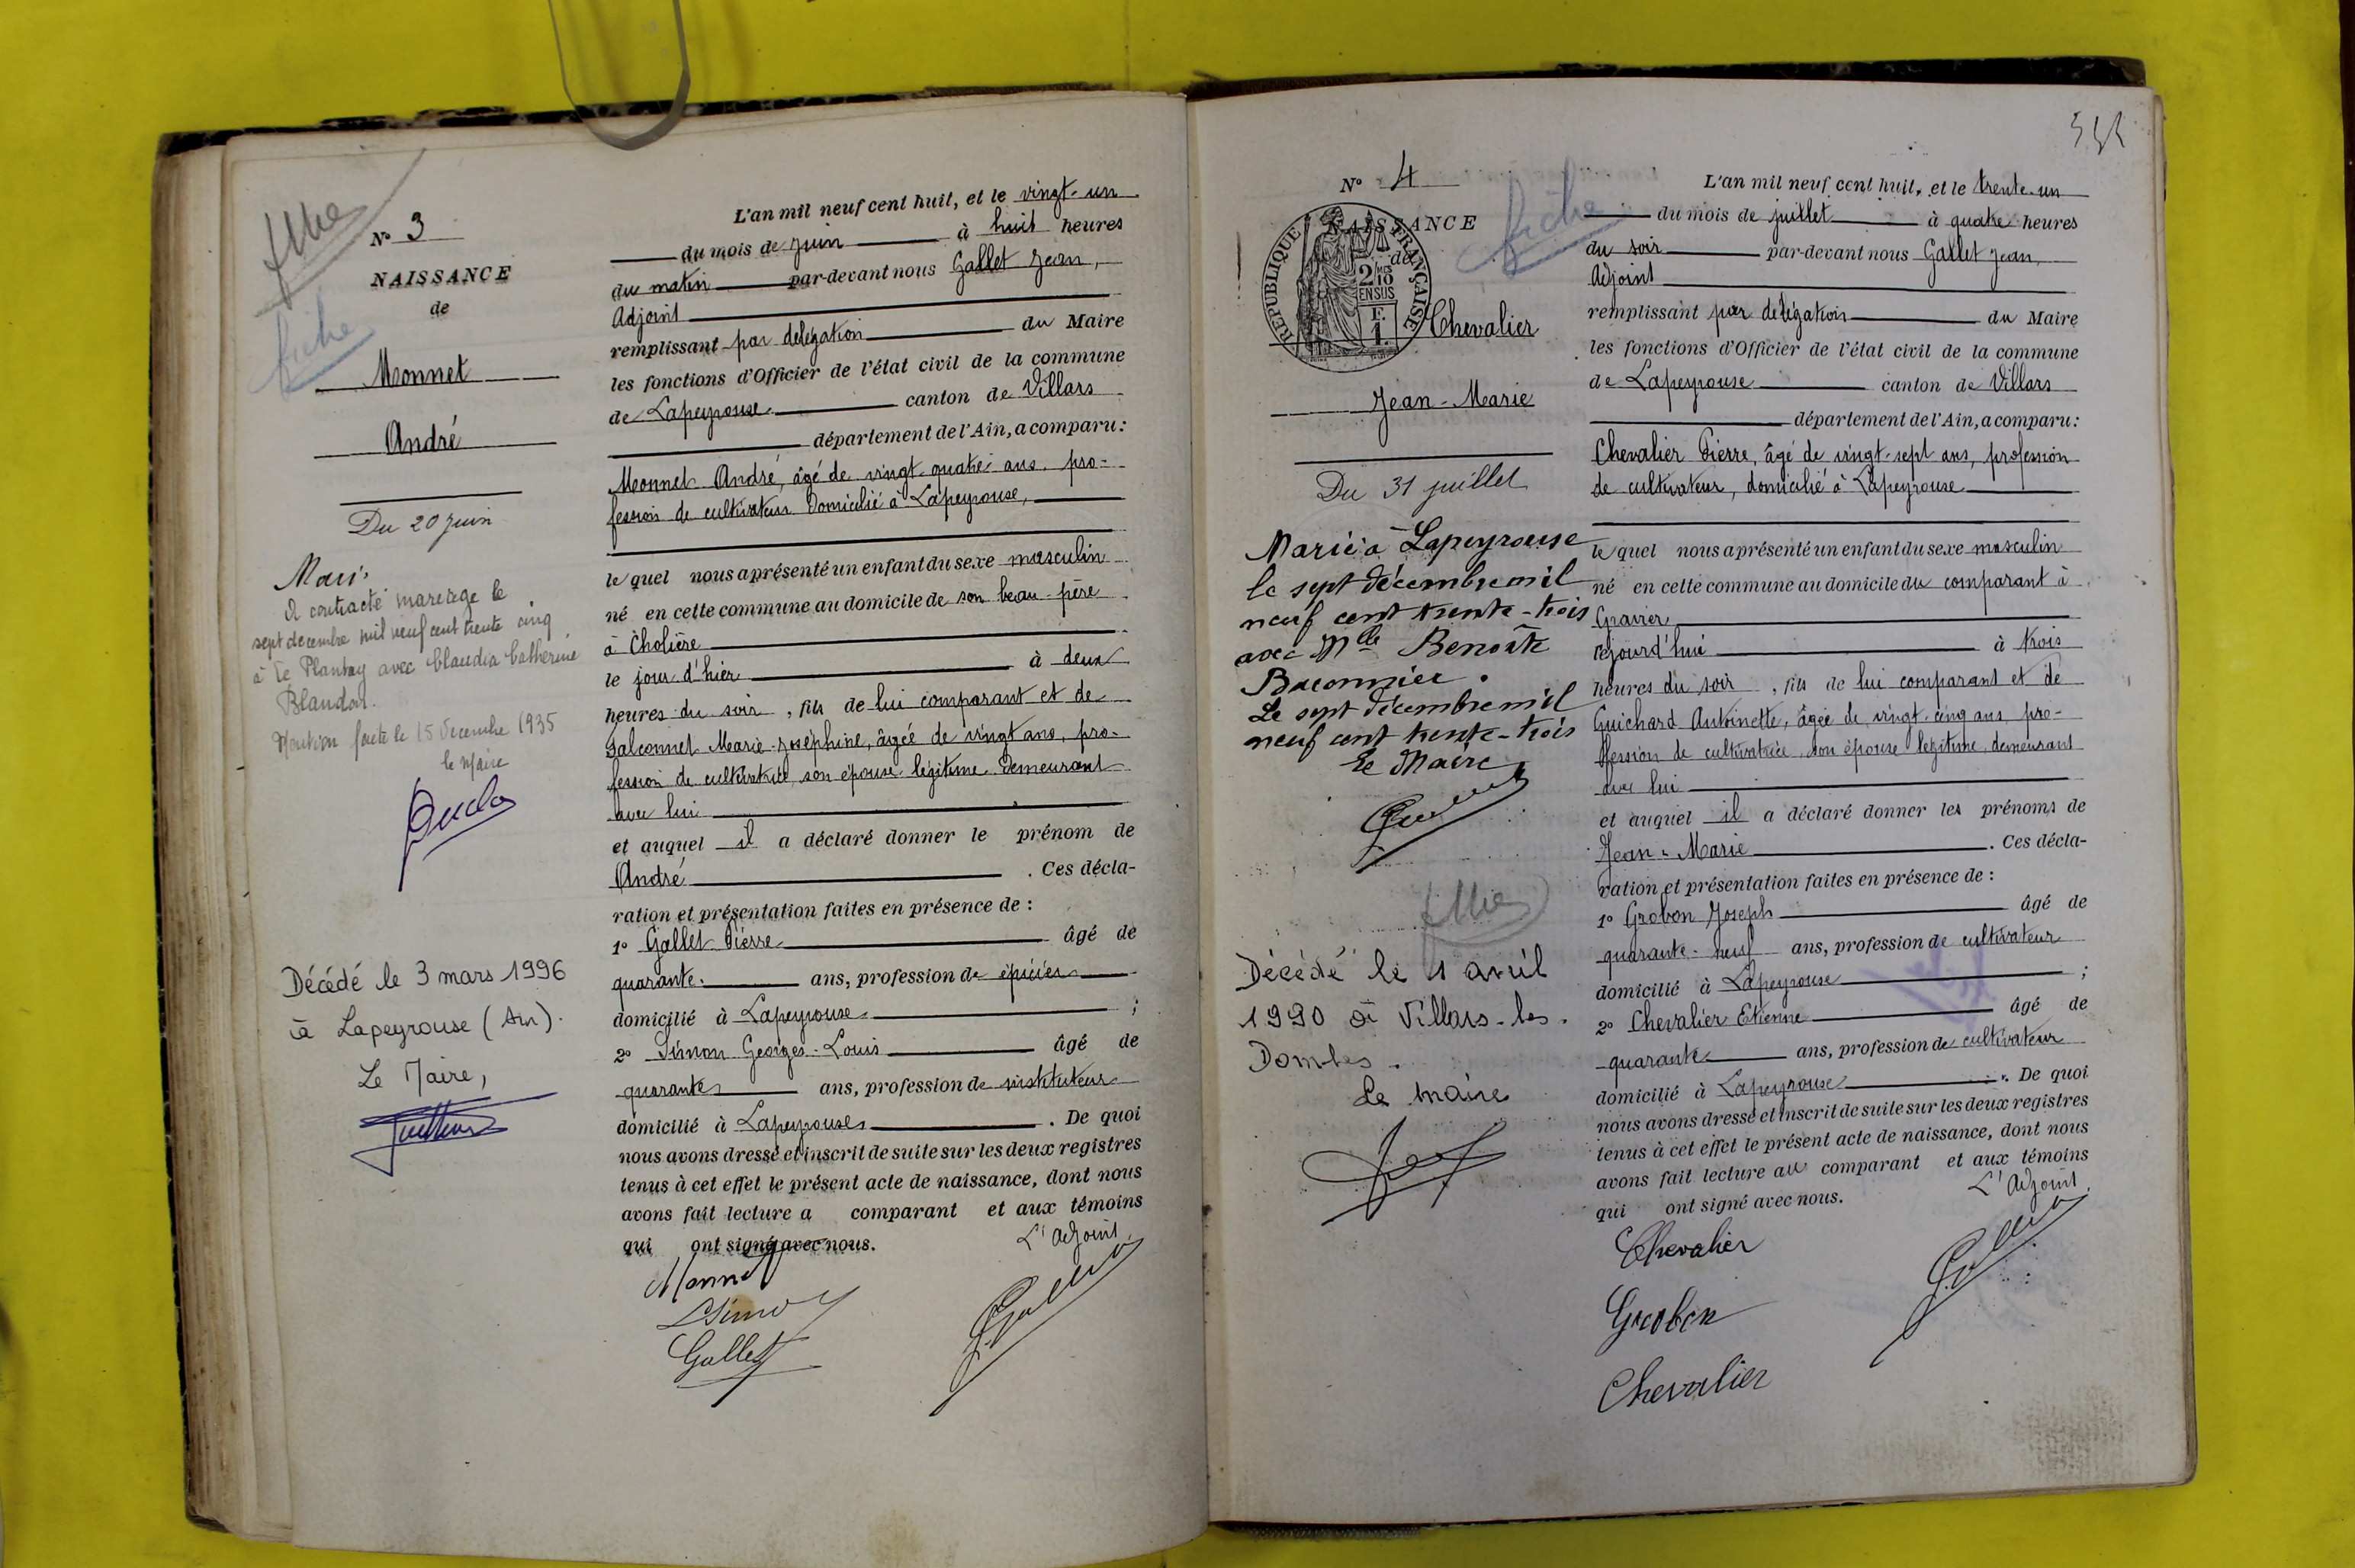 N° 3
NAISSANCE
de
Monnet
André
Du 20 juin
Marié
A contracté mariage le
sept decembre mil neuf cent trente cinq
à Le Plantay avec Claudia Catherine
Blandon.
Mention faite le 15 Decembre 1935
le Maire
Décédé le 3 mars 1996
à Lapeyrouse (Ain).
Le Maire,
L'an mil neuf cent huit, et le vingt-un
du mois de juin à huit heures
du matin par-devant nous Gallet Jean,
Adjoint
remplissant par délégation du Maire
les fonctions d'Officier de l'état civil de la commune
de Lapeyrouse canton de Villars
département de l'Ain, a comparu:
Monnet André, âgé de vingt-quatre ans, pro-
fession de cultivateur domicilié à Lapeyrouse,
lequel nous a présenté un enfant du sexe masculin
né en cette commune au domicile de son beau-père
à Cholière
le jour d'hier à deux
heures du soir, fils de lui comparant et de
Falconnet Marie-Joséphine, âgée de vingt ans, pro-
fession de cultivatrice son épouse légitime demeurant
avec lui
et auquel il a déclaré donner le prénom de
André. Ces décla-
ration et présentation faites en présence de :
1° Gallet Pierre âgé de
quarante ans, profession de épicier
domicilié à Lapeyrouse ;
2° Simon Georges-Louis âgé de
quarante ans, profession de instituteur
domicilié à Lapeyrouse. De quoi
nous avons dressé et inscrit de suite sur les deux registres
tenus à cet effet le présent acte de naissance, dont nous
avons fait lecture a comparant et aux témoins
qui ont signé avec nous.
L'adjoint,
Monnet
Simon
Gallet
N° 4
NAISSANCE
de
RÉPUBLIQUE FRANÇAISE
2/10 EN SUS
Chevalier
Jean-Marie
Du 31 juillet
Marié à Lapeyrouse
le sept décembre mil
neuf cent trente-trois
avec Mlle Benoîte
Baconnier.
Le sept décembre mil
neuf cent trente-trois
Le Maire
Décédé le 1 avril
1990 à Villars-les-
Dombes.
Le maire
L'an mil neuf cent huit, et le trente-un
du mois de juillet à quatre heures
du soir par-devant nous Gallet Jean,
Adjoint
remplissant par délégation du Maire
les fonctions d'Officier de l'état civil de la commune
de Lapeyrouse canton de Villars
département de l'Ain, a comparu:
Chevalier Pierre, âgé de vingt-sept ans, profession
de cultivateur, domicilié à Lapeyrouse
lequel nous a présenté un enfant du sexe masculin
né en cette commune au domicile du comparant à
Gravier
cejourd'hui à trois
heures du soir, fils de lui comparant et de
Guichard Antoinette, âgée de vingt-cinq ans, pro-
fession de cultivatrice son épouse légitime, demeurant
avec lui
et auquel il a déclaré donner les prénoms de
Jean-Marie. Ces décla-
ration et présentation faites en présence de :
1° Grobon Joseph âgé de
quarante-neuf ans, profession de cultivateur
domicilié à Lapeyrouse ;
2° Chevalier Etienne âgé de
quarante ans, profession de cultivateur
domicilié à Lapeyrouse. De quoi
nous avons dressé et inscrit de suite sur les deux registres
tenus à cet effet le présent acte de naissance, dont nous
avons fait lecture au comparant et aux témoins
qui ont signé avec nous.
L'Adjoint,
Chevalier
Grobon
Chevalier